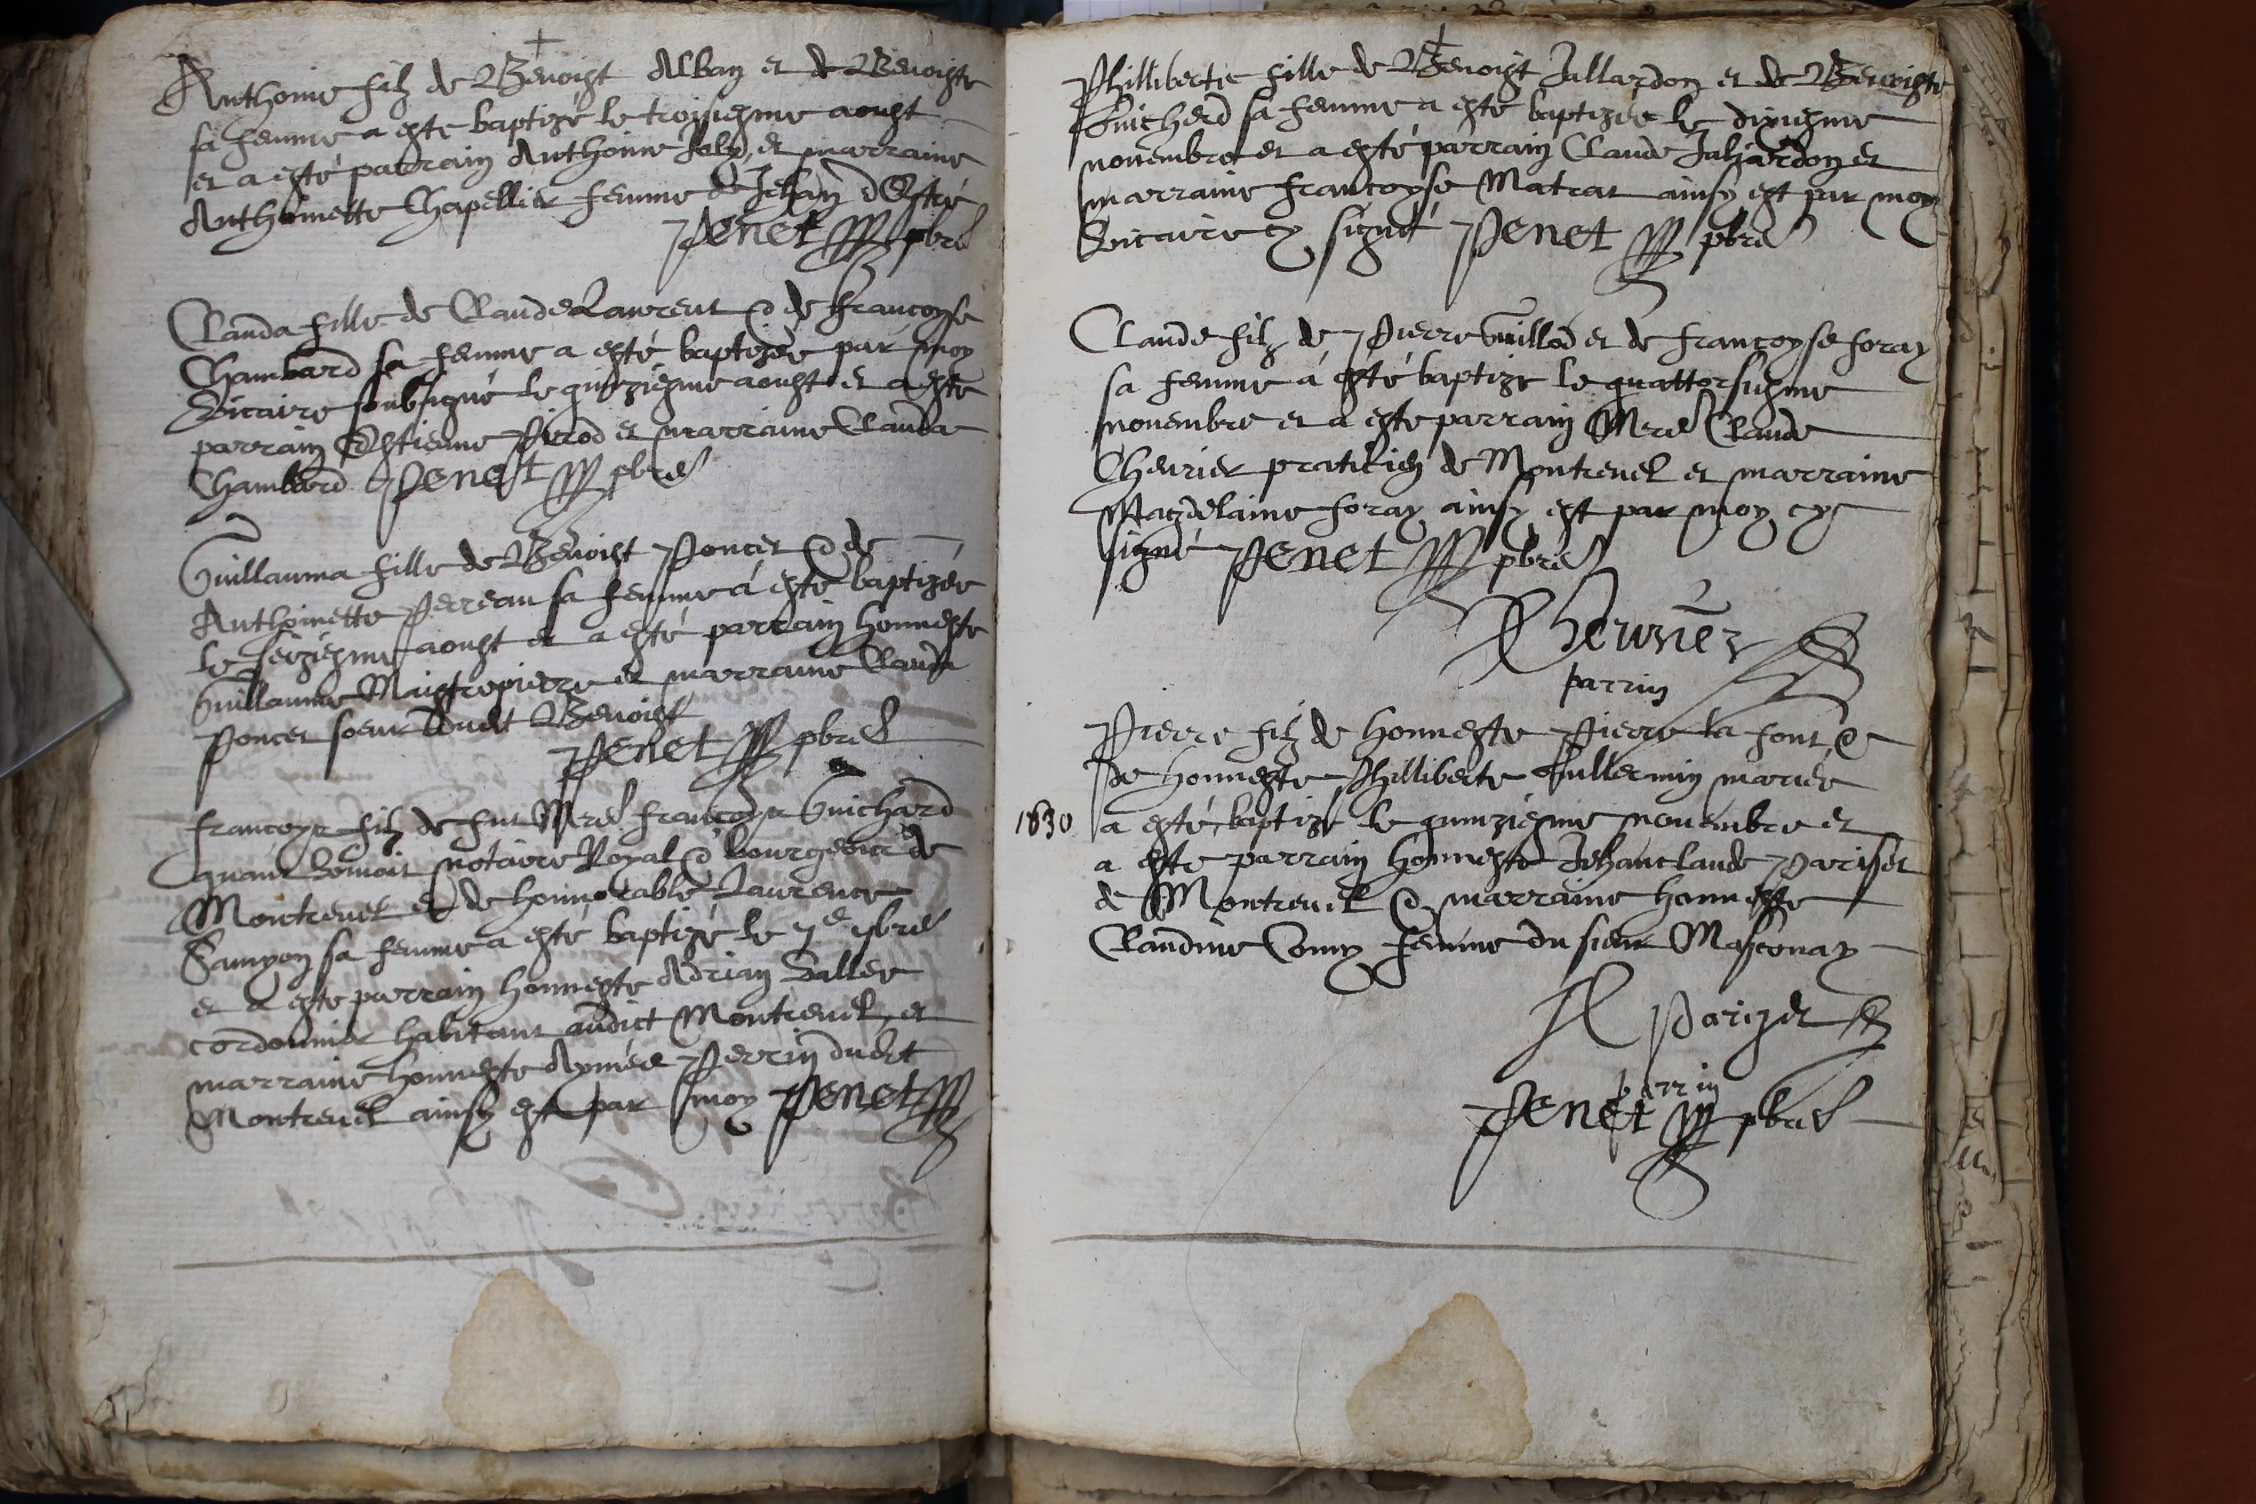 Anthoine filz de Benoist Alban et de Benoiste
sa femme a esté baptizé le troisiesme aoust
et a esté parrain Anthoine Joly et marraine
Anthoinette Chapellier femme de Jehan
Penet pbre
Clauda fille de Claude Laurent & de Françoyse
Chambard sa femme a esté baptizée par moy
Vicaire soubsigné le quinziesme aoust et a esté
parrain Estienne Pirod et marraine Clauda
Chambard Penet pbre
Guillauma fille de Benoist Poncet & de
Anthoinette Perreau sa femme a esté baptizée
le seiziesme aoust et a esté parrain honneste
Guillaume Maistrepierre et marraine Clauda
Poncet soeur dudit Benoist
Penet pbre
Françoys filz de fut Mre Françoys Guichard
quant vivoit notaire Royal & bourgeois de
Montrevel et de honnorable Laurence
Samyon sa femme a esté baptizé le 7bre
et a esté parrain honneste Adrian Vallee
cordonnier habitant audict Montrevel, et
marraine honneste Aymée Perrin dudit
Montrevel ainsy est par moy Penet
Phillibertie fille de Benoist Jullardon et de Benoiste
Guicherd sa femme a esté baptizée le dixiesme
novembre et a esté parrain Claude Jaliardon et
marraine Françoyse Matrat ainsy est par moy
Vicaire cy signé Penet pbre
Claude filz de Pierre Guillod et de Françoyse foray
sa femme a esté baptizé le quattorsiesme
novembre et a esté parrain Mre Claude
Chevrier praticien de Montrevel et marraine
Magdelaine foray ainsy est par moy cy
signé Penet pbre
Chevrier
parrin
Pierre filz de honneste Pierre la font &
de honneste Philliberte Vullermin mariés
1630
a esté baptizé le quinziesme novembre et
a esté parrain honneste Jehanclaude Pariset
de Montrevel & marraine honneste
Claudine Cony femme du sieur Masconay
Parizet
parrin
Penet pbre